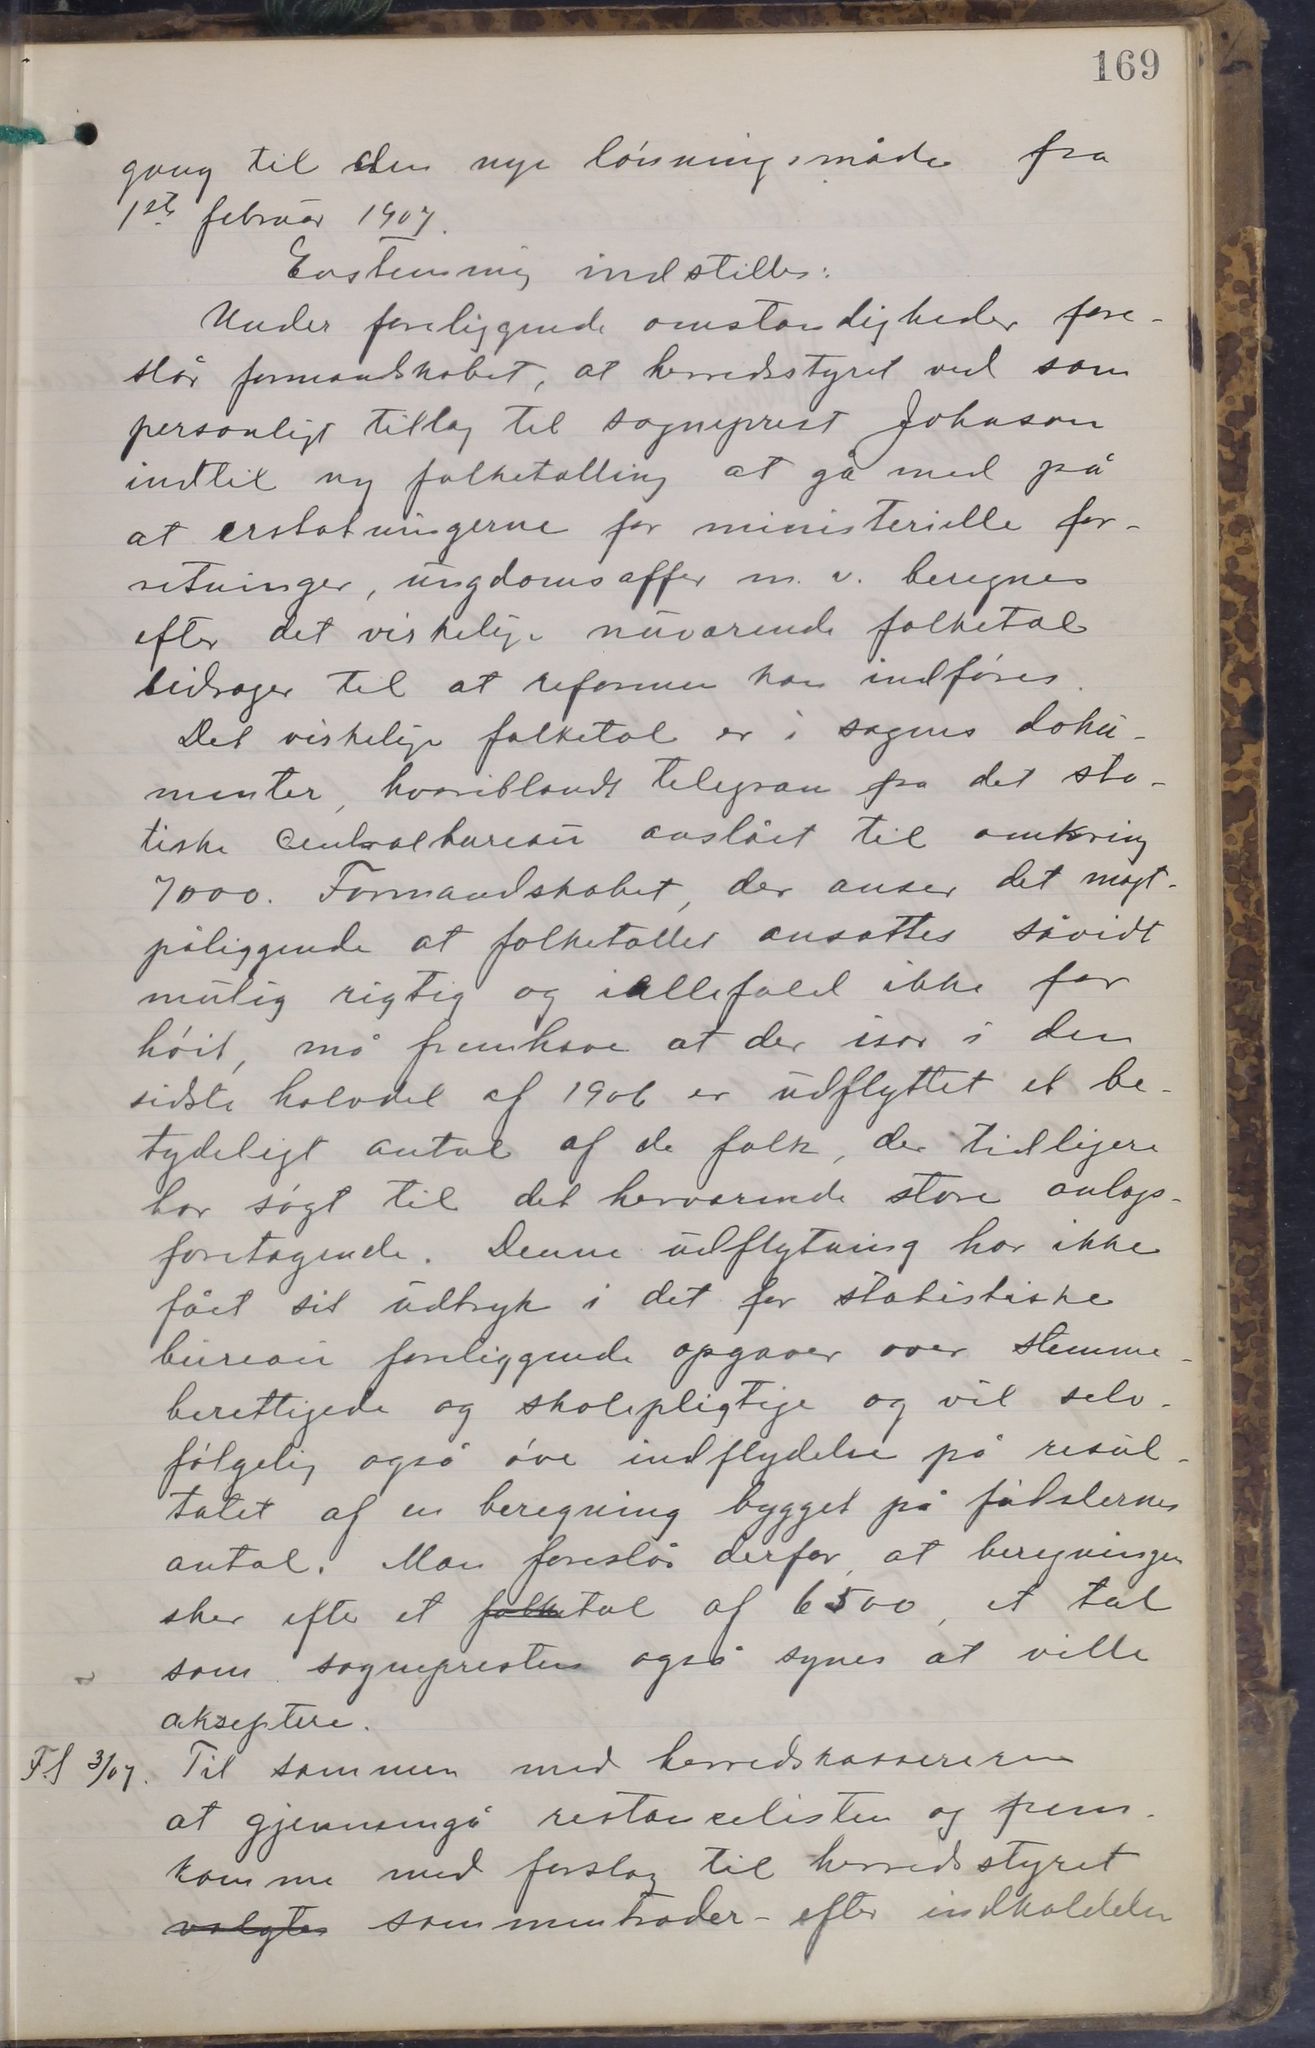 169
gang til den nye lønningsmåde fra
1ste februar 1907.
Enstemmig indstilles:
Under foreliggende omstændigheder fore-
slår formandskabet, at herredsstyret ved som
personligt tillæg til sogneprest Johnson
indtil ny folketælling at gå med på
at erstatningerne for ministerielle for-
retninger, ungdomsoffer m. v. beregnes
efter det virkelige nuværende folketal
bidrager til at reformen kan indføres.
Det virkelige folketal er i sagens doku-
menter, hvoriblandt telegram fra det sta-
tiske Centralbureau anslået til omkring
7000. Formandskabet, der anser det magt-
påliggende at folketallet ansættes såvidt
mulig rigtig og iallefald ikke for
høit, må fremhæve at der især i den
sidste halvdel af 1906 er udflyttet et be-
tydeligt antal af de folk, der tidligere
har søgt til det herværende store anlægs-
foretagende. Denne udflytning har ikke
fået sit udtryk i det for statistiske
bureau foreliggende opgaver over stemme-
berettigede og skolepligtige og vil selv-
følgelig også øve indflydelse på resul-
tatet af en beregning bygget på fødslernes
antal. Man foreslår derfor, at beregningen
sker efter et folketal af 6500, et tal
som sognepresten også synes at ville
akseptere.
F.S 3/07. Til sammen med herredskassereren
at gjennemgå restancelisten og frem-
komme med forslag til herredsstyret
valgtes sammentræder - efter indkaldelse